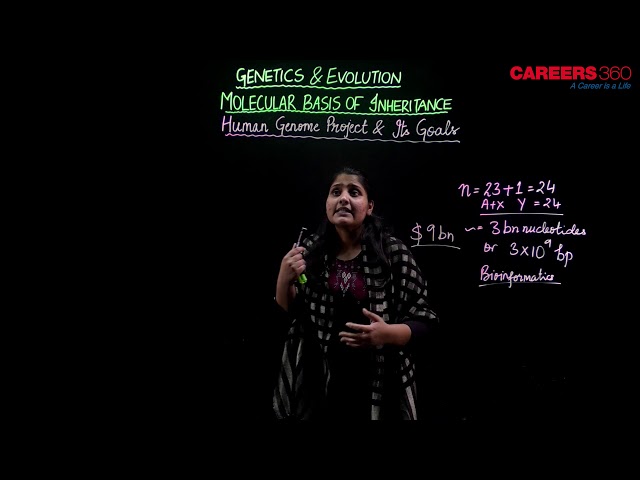 CAREERS360
A Career is a Life
GENETICS & EVOLUTION
MOLECULAR BASIS OF INHERITANCE
Human Genome Project & Its Goals
n = 23 + 1 = 24
A+X Y = 24
$9 bn ~= 3 bn nucleotides
or 3×10⁹ bp
Bioinformatics